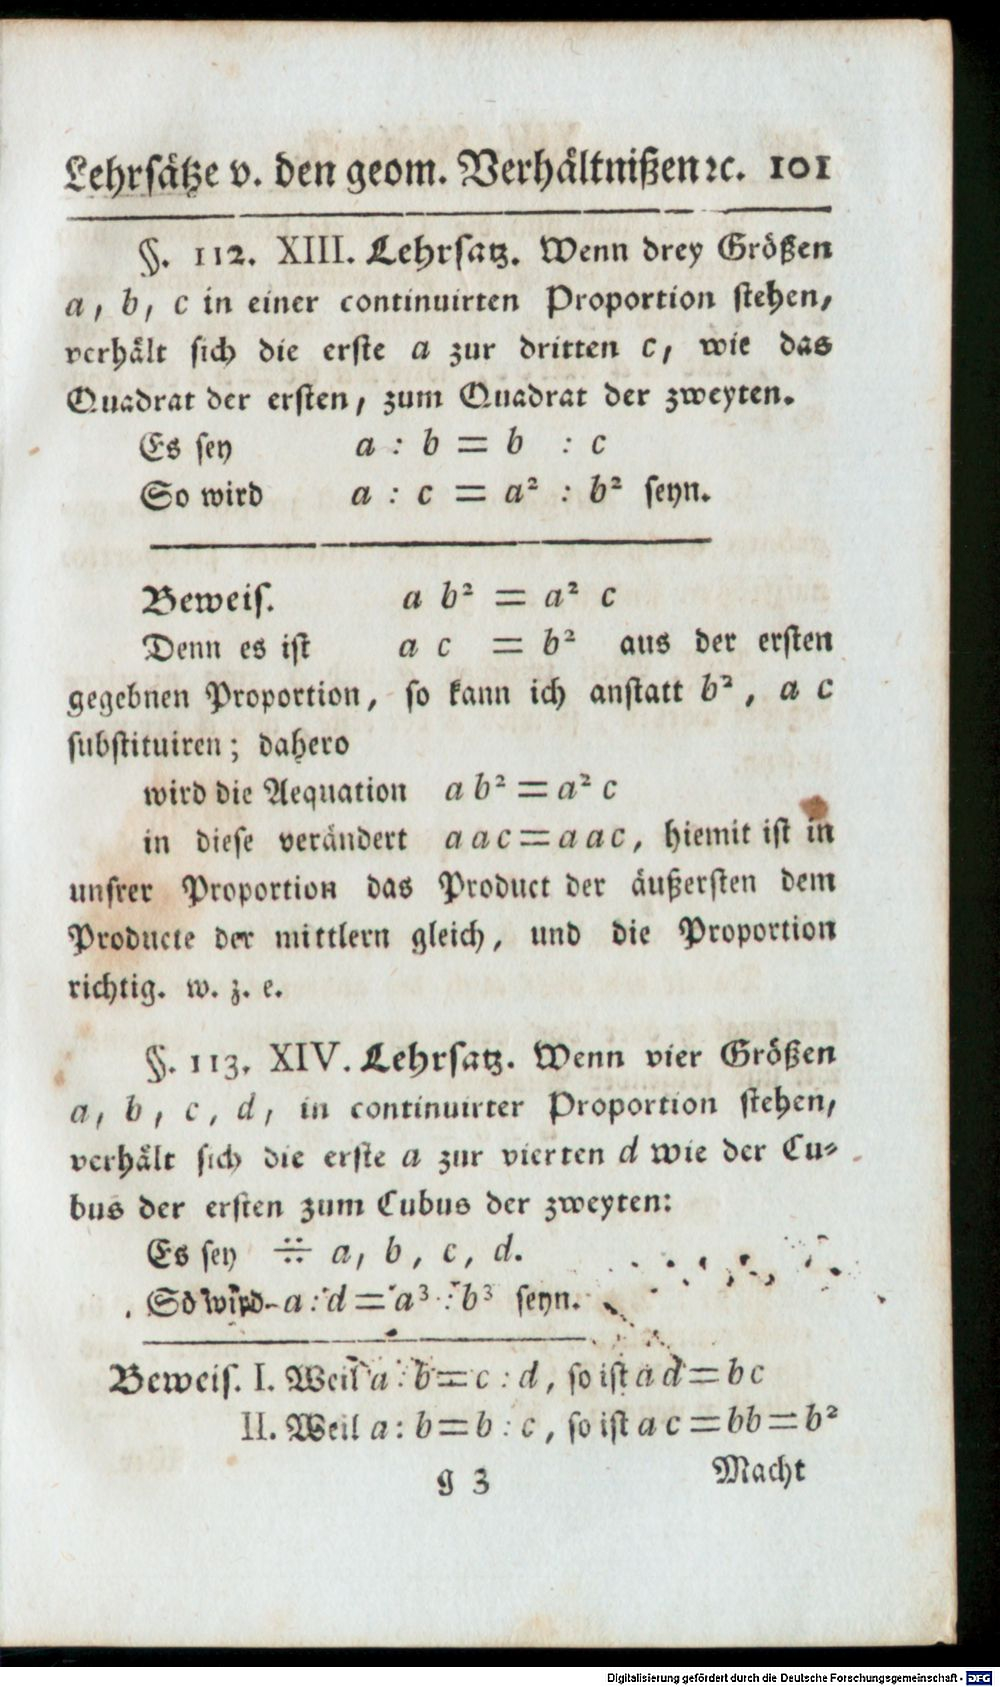 Lehrsätze v. den geom. Verhältnißen ꝛc. 101
§. 112. XIII. Lehrsatz. Wenn drey Größen
a, b, c in einer continuirten Proportion stehen,
verhält sich die erste a zur dritten c, wie das
Quadrat der ersten, zum Quadrat der zweyten.
Es sey a : b = b : c
So wird a : c = a² : b² seyn.
Beweis. a b² = a² c
Denn es ist a c = b² aus der ersten
gegebnen Proportion, so kann ich anstatt b², a c
substituiren; dahero
wird die Aequation a b² = a² c
in diese verändert a a c = a a c, hiemit ist in
unsrer Proportion das Product der äußersten dem
Producte der mittlern gleich, und die Proportion
richtig. w. z. e.
§. 113. XIV. Lehrsatz. Wenn vier Größen
a, b, c, d, in continuirter Proportion stehen,
verhält sich die erste a zur vierten d wie der Cu-
bus der ersten zum Cubus der zweyten:
Es sey ∺ a, b, c, d.
So wird a : d = a³ : b³ seyn.
Beweis. I. Weil a : b = c : d, so ist a d = b c
II. Weil a : b = b : c, so ist a c = bb = b²
g 3 Macht
Digitalisierung gefördert durch die Deutsche Forschungsgemeinschaft - DFG